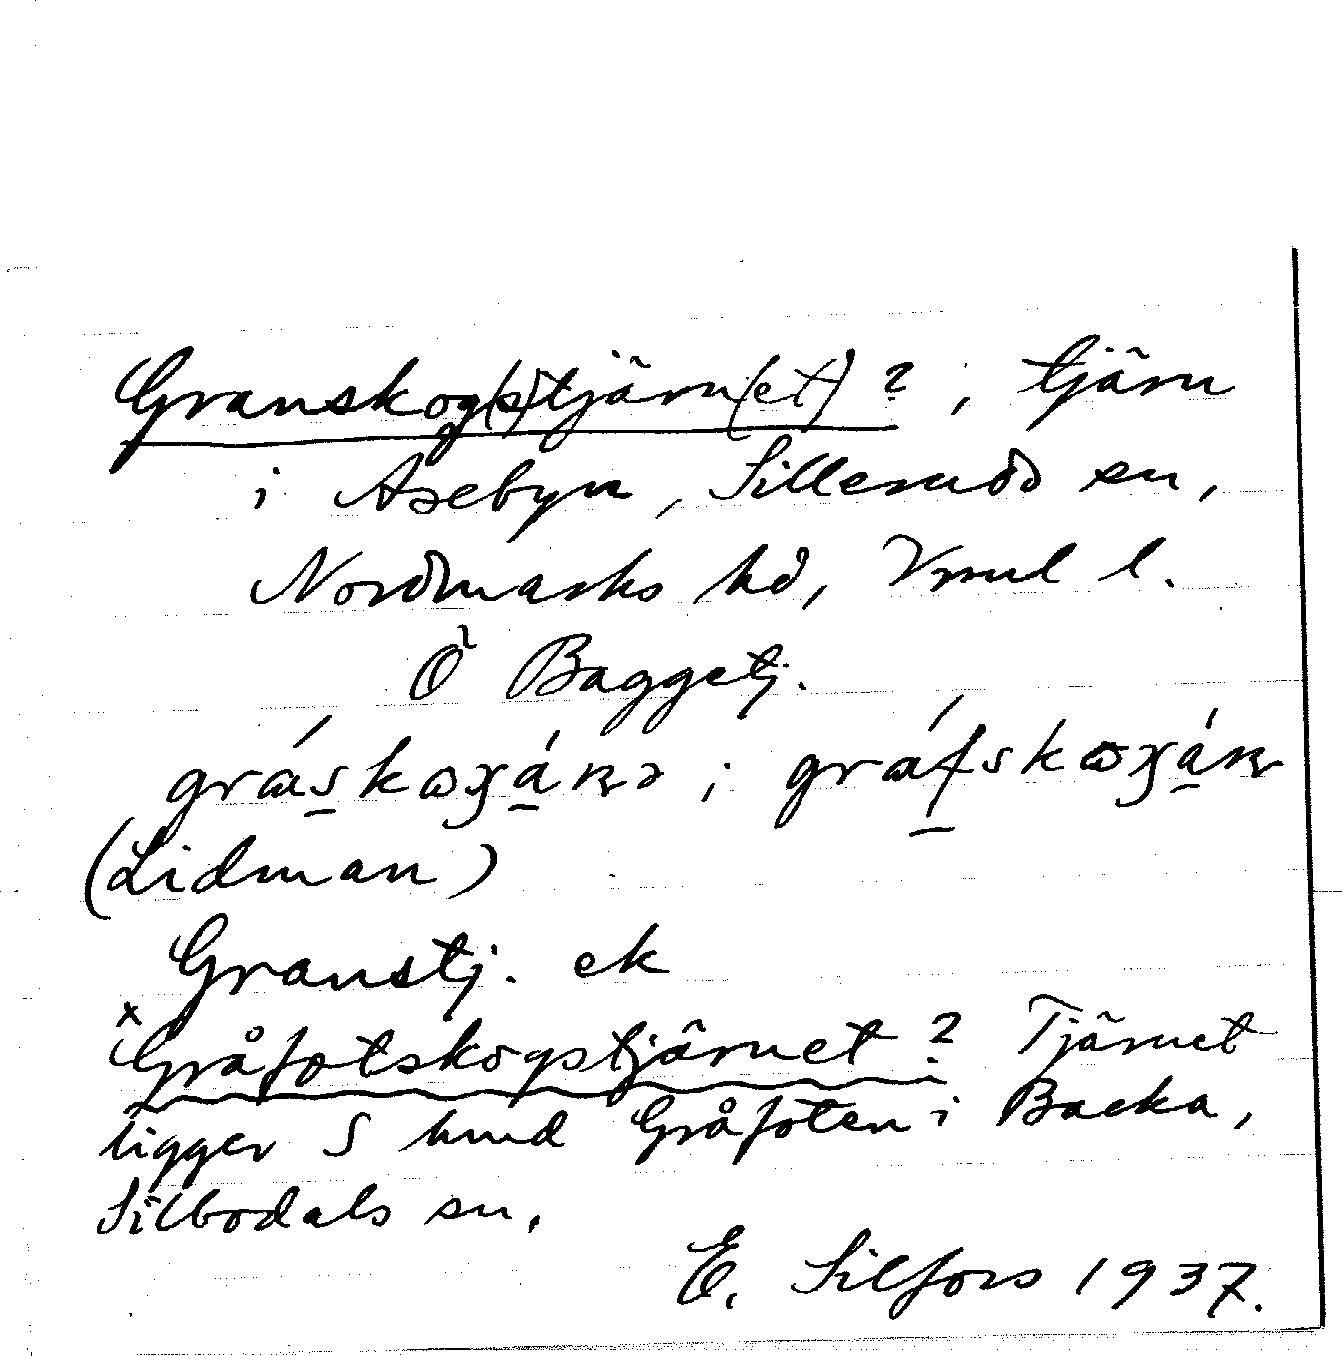 Granskog(s)tjärn(et)?, tjärn
i Åsebyn, Sillerud sn,
Nordmarks hd, Vrml l.
Ö Baggetj.
(Lidman)
Granstj. ek
x Gråfotskogstjärnet? Tjärnet
ligger S hmd Gråfoten i Backa,
Silbodals sn.
E. Silfors 1937.